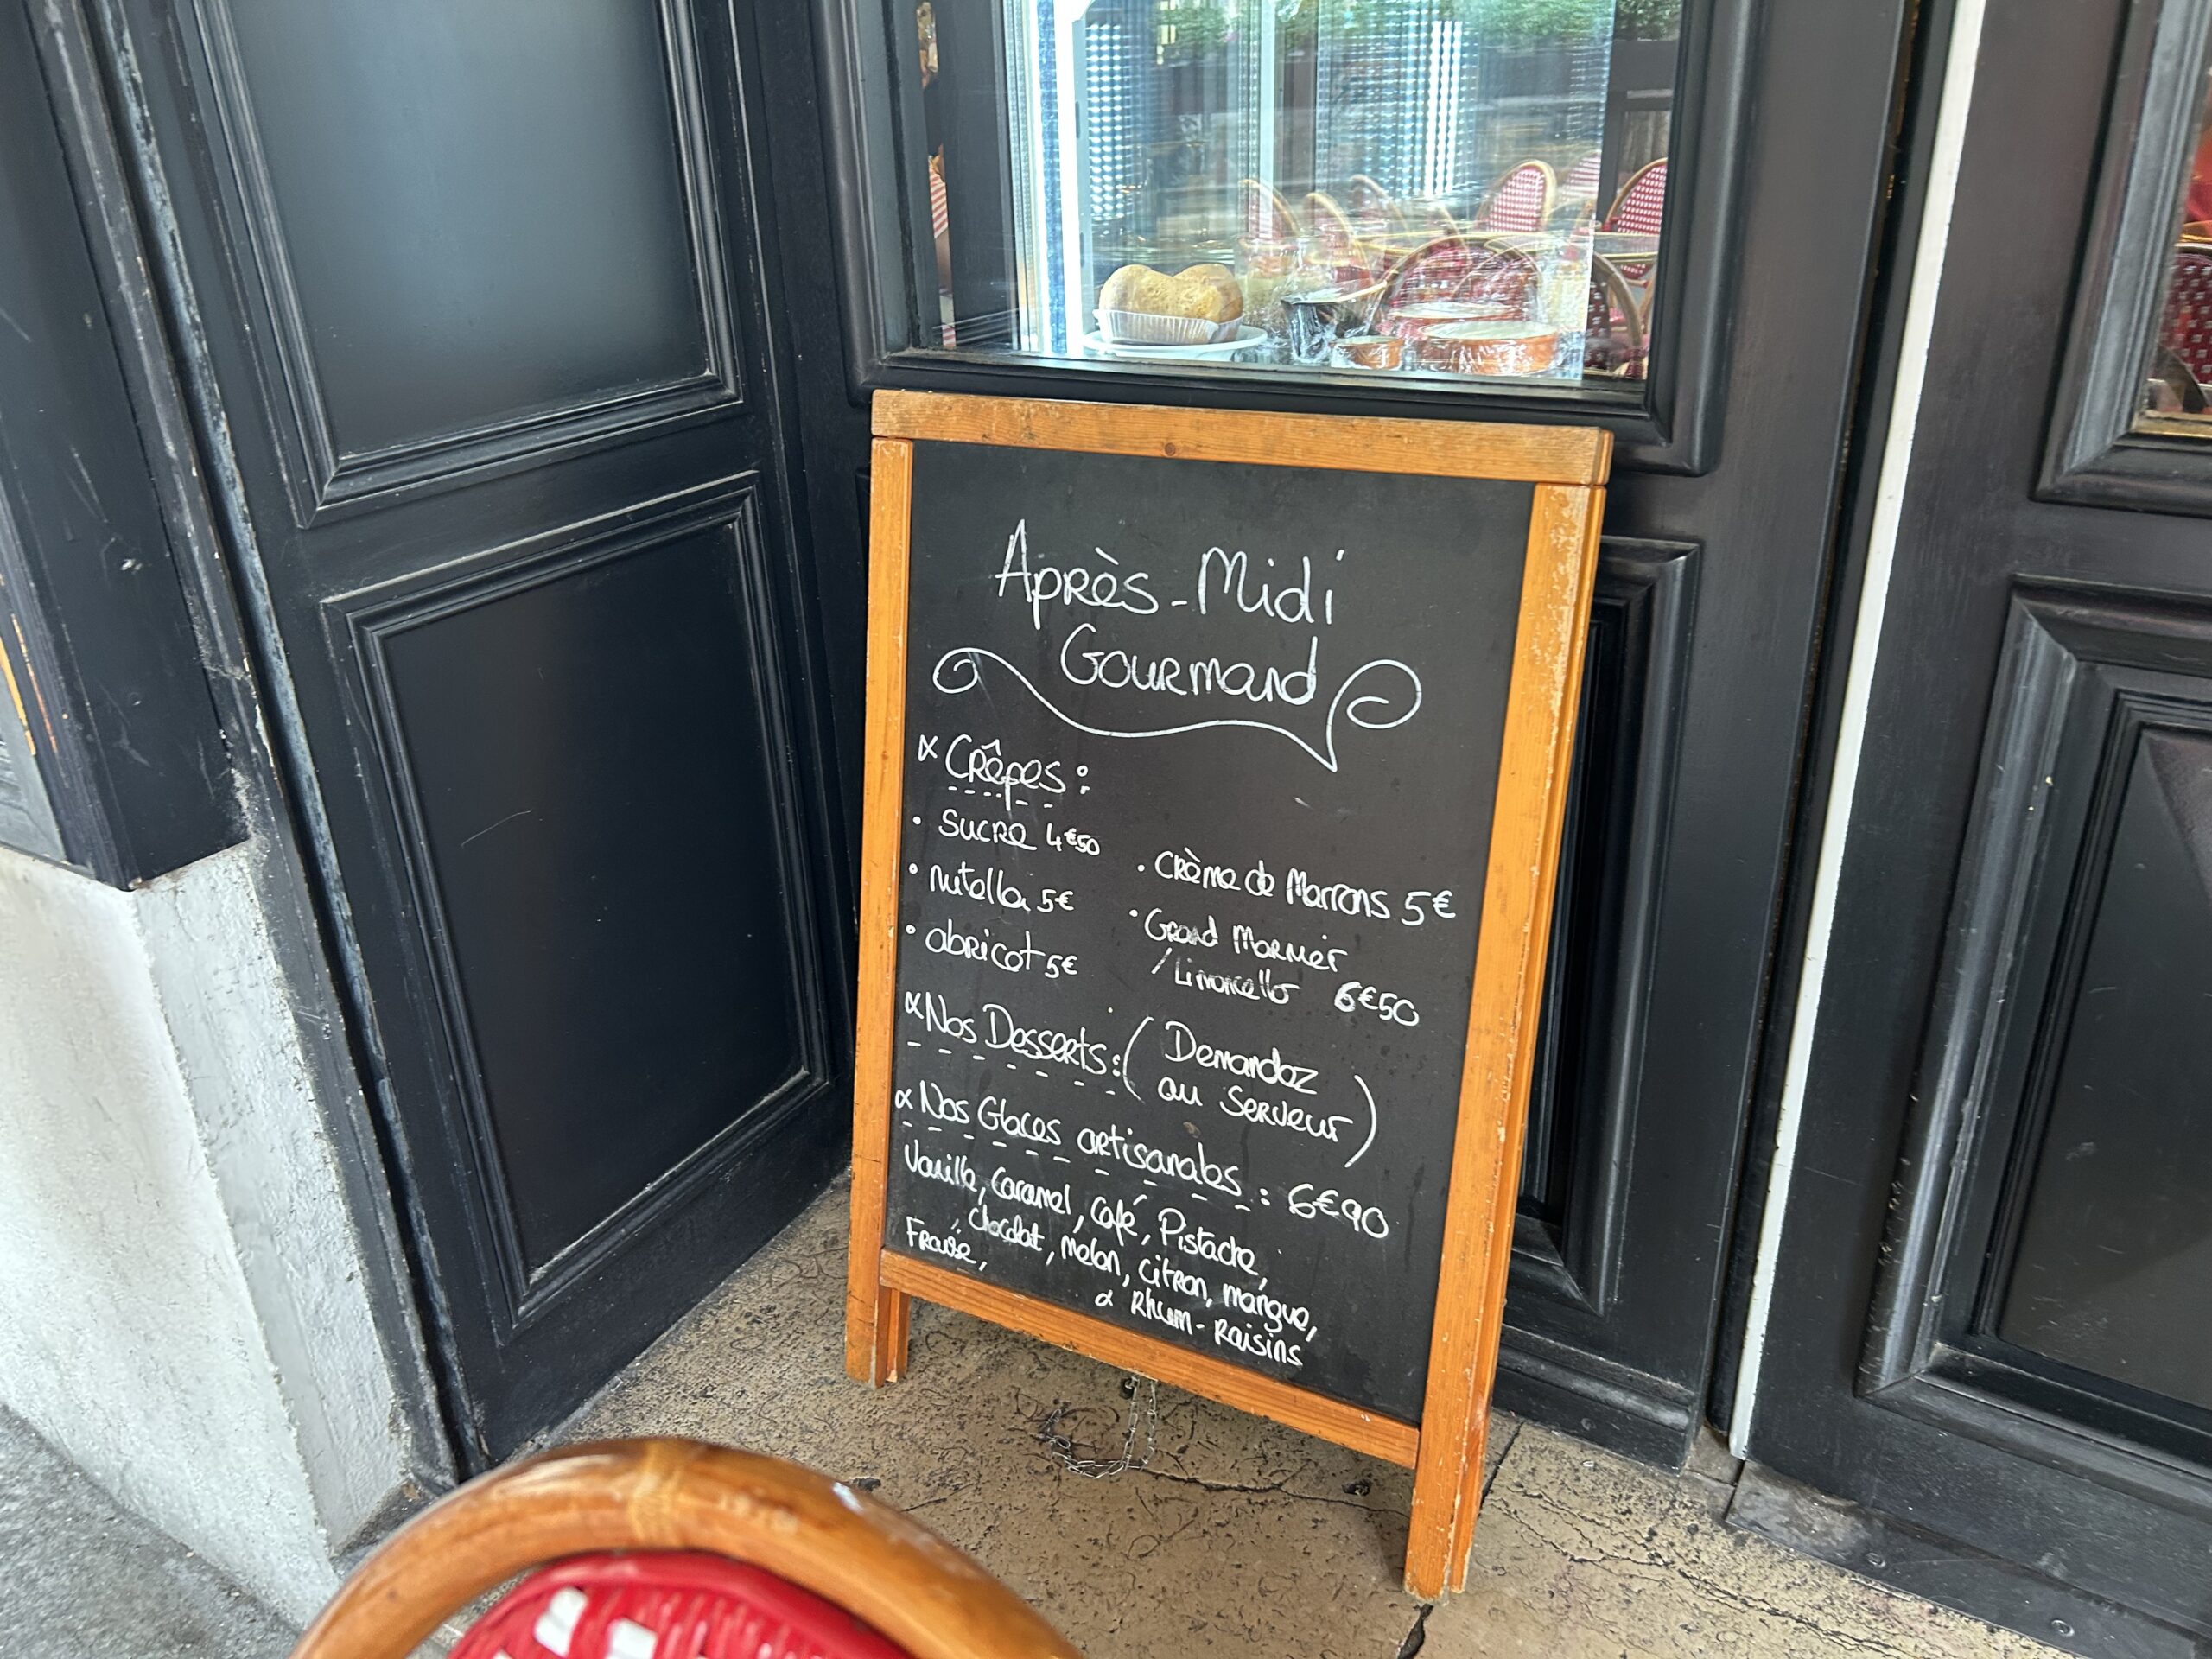 Après-Midi
Gourmand
Crêpes :
• Sucre 4€50
• nutella 5€
• abricot 5€
• Crème de Marrons 5€
• Grand Marnier
/Limoncello 6€50
Nos Desserts : ( Demandez
au Serveur )
Nos Glaces artisanales : 6€90
Vanille, Caramel, Café, Pistache,
Fraise, Chocolat, Melon, Citron, mangue,
Rhum-Raisins